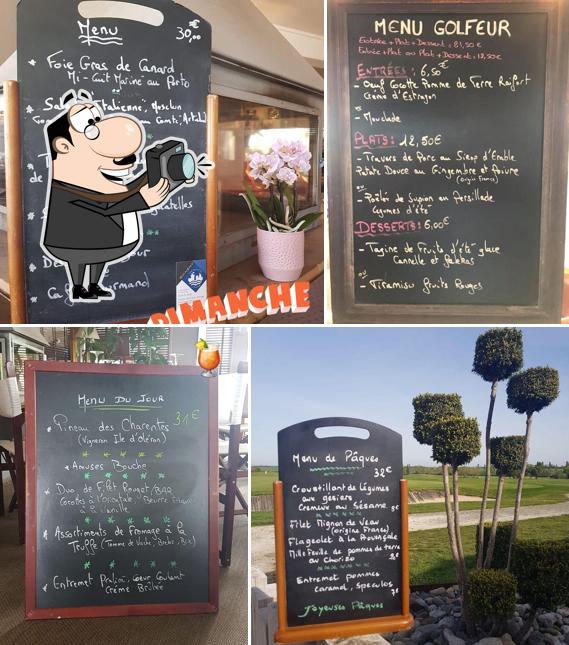 Menu
30,00€
* Foie Gras de Canard
Mi-Cuit Mariné au Porto
Italienne, Mesclun
au Comté,
de
Gourmand
DIMANCHE
MENU GOLFEUR
Entrée + Plat + Dessert : 21,50 €
Entrée + Plat ou Plat + Dessert : 17,50 €
ENTRÉES : 6,50€
- Oeuf Cocotte Pomme de Terre Raifort
Crème d'Estragon
ou
- Mouclade
PLATS : 12,50€
- Travers de Porc au Sirop d'Erable
Patate Douce au Gingembre et Poivre
(origine France)
ou
- Poêlée de Supion au Persillade
Légumes d'été
DESSERTS : 6,00€
- Tagine de Fruits d'été glace
Cannelle et
ou
- Tiramisu fruits Rouges
MENU DU JOUR
31€
* Pineau des Charentes
(Vigneron Ile d'Oléron)
* Amuses Bouche
* Duo de Filet Rouget/
à l' Beurre
à la Vanille
* Assortiments de Fromage à la
Truffe (Tomme de Vache, Brebis, Brie)
* Entremet Praliné, coeur Coulant
Crème Brûlée
Menu de Pâques
32€
Croustillant de Légumes
aux gésiers
Crémeux au Sésame 9€
Filet Mignon de Veau
(origine France)
Flageolet à la Provençale
Mille Feuille de pommes de terre
au Chorizo
Entremet pommes
caramel, speculos
7€
Joyeuses Pâques